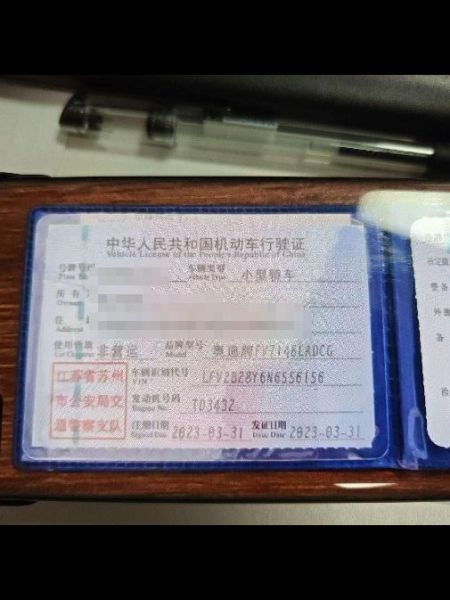 中华人民共和国机动车行驶证
Vehicle License of the People's Republic of China
号牌号码 车辆类型 小型轿车
Plate No. Vehicle Type
所有人
Owner
住
Address
使用性质 非营运 品牌型号 奥迪牌FV7146LADCG
Use Character Model
江苏省苏州
市公安局交
通警察支队
车辆识别代号 LFV2B28Y6N6556156
VIN
发动机号码 TD3432
Engine No.
注册日期 2023-03-31 发证日期 2023-03-31
Register Date Issue Date
整备
外廓
备